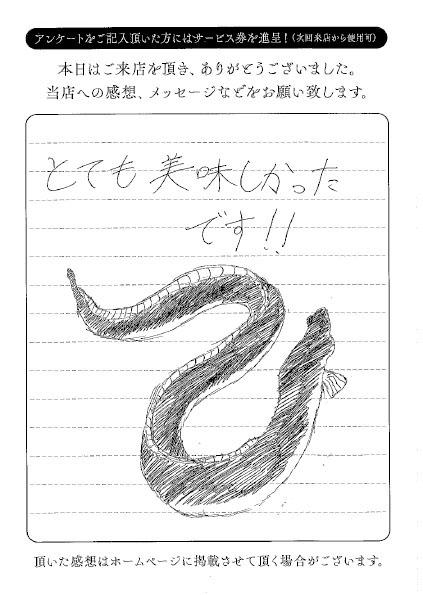 アンケートをご記入頂いた方にはサービス券を進呈！(次回来店から使用可)
本日はご来店を頂き、ありがとうございました。
当店への感想、メッセージなどをお願い致します。
とても美味しかった
です!!
頂いた感想はホームページに掲載させて頂く場合がございます。